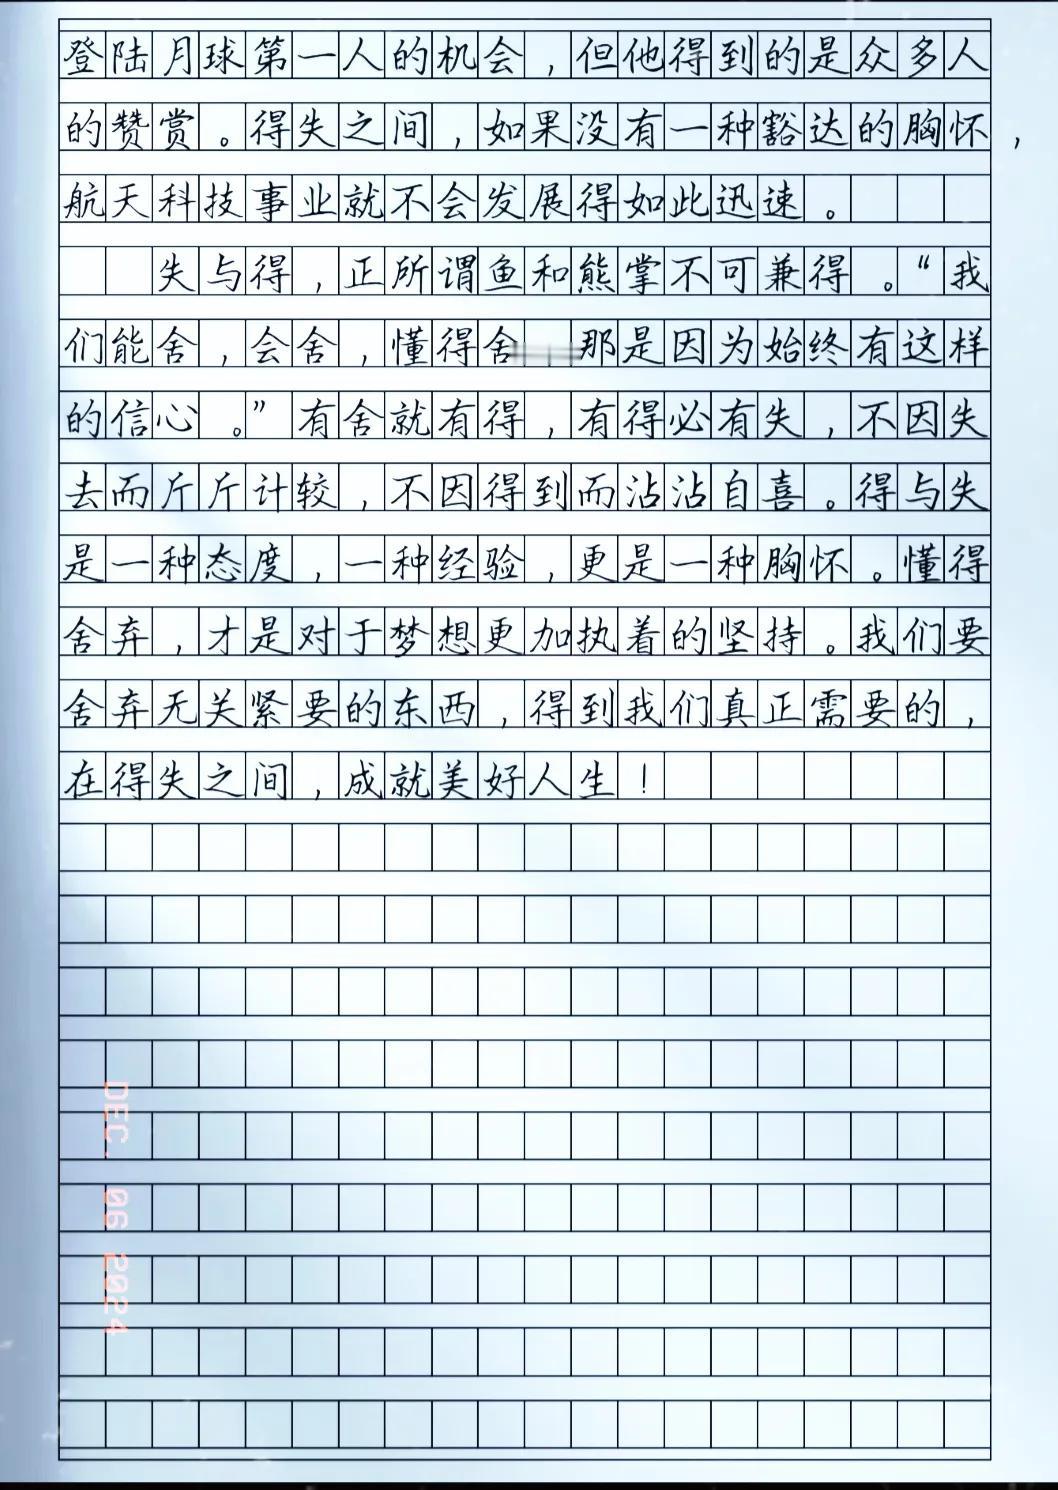 登陆月球第一人的机会，但他得到的是众多人
的赞赏。得失之间，如果没有一种豁达的胸怀，
航天科技事业就不会发展得如此迅速。
失与得，正所谓鱼和熊掌不可兼得。“我
们能舍，会舍，懂得舍 那是因为始终有这样
的信心。”有舍就有得，有得必有失，不因失
去而斤斤计较，不因得到而沾沾自喜。得与失
是一种态度，一种经验，更是一种胸怀。懂得
舍弃，才是对于梦想更加执着的坚持。我们要
舍弃无关紧要的东西，得到我们真正需要的，
在得失之间，成就美好人生！
DEC. 06 2024